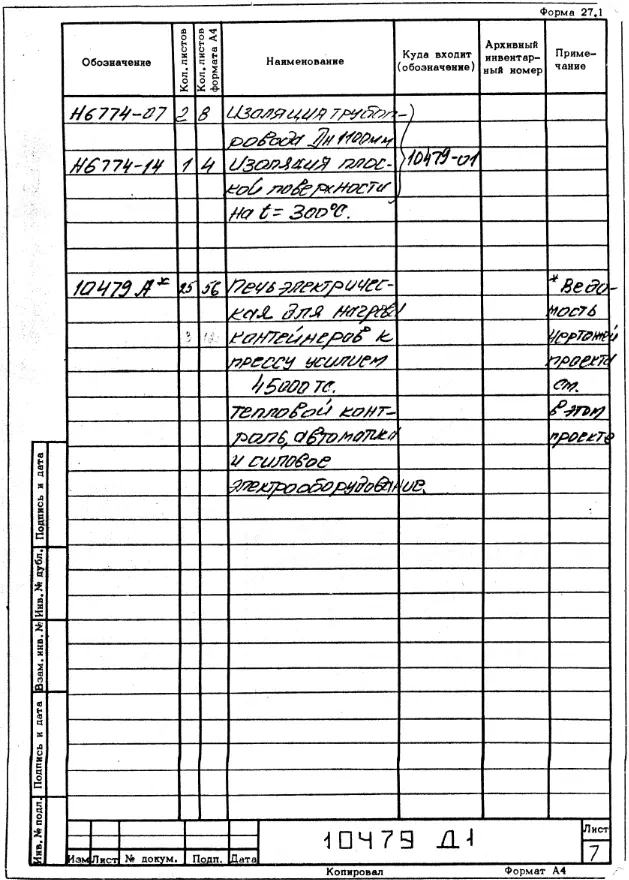 Форма 27.1
Обозначение
Кол. листов
Кол. листов формата А4
Наименование
Куда входит (обозначение)
Архивный инвентар-ный номер
Приме-чание
Н6774-07 2 8 Изоляция трубоп-
ровода Дн 1100мм
Н6774-14 1 4 Изоляция плос- 10479-01
кой поверхности
на t = 300°С.
10479 А* 25 56 Печь электричес- * Ведо-
кая для нагрева мость
контейнеров к чертежей
прессу усилием проекта
45000 тс. см.
Тепловой конт- в этом
роль, автоматика проекте
и силовое
электрооборудование.
Подпись и дата
Инв. № дубл.
Взам. инв. №
Подпись и дата
Инв. № подл.
Изм Лист № докум. Подп. Дата
10479 Д1
Лист
7
Копировал Формат А4